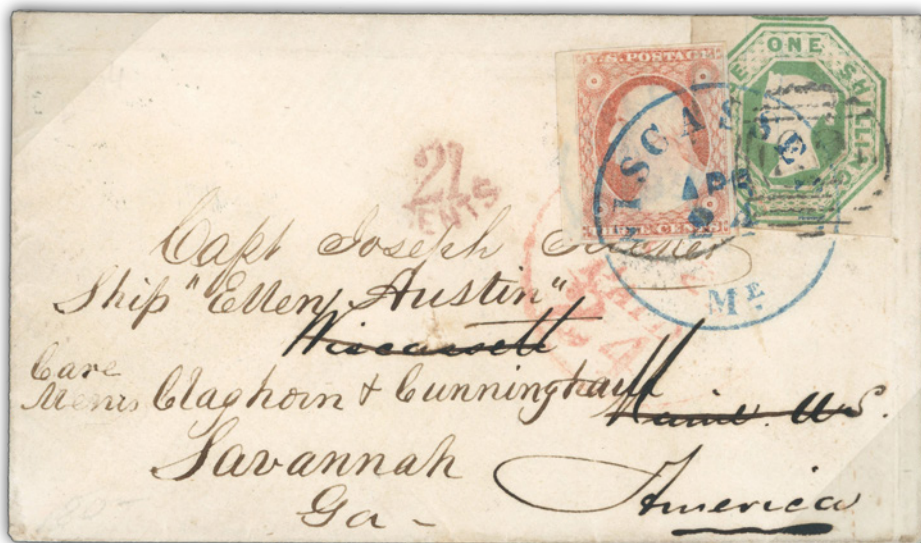 ONE SHILLING
U.S. POSTAGE
THREE CENTS
WISCASSET
APR
Mᴱ
21
CENTS
Capt Joseph
Ship "Ellen Austin"
Wiscassett
Care
Messrs Claghorn & Cunningham
Maine. U.S.
Savannah
America
Ga -